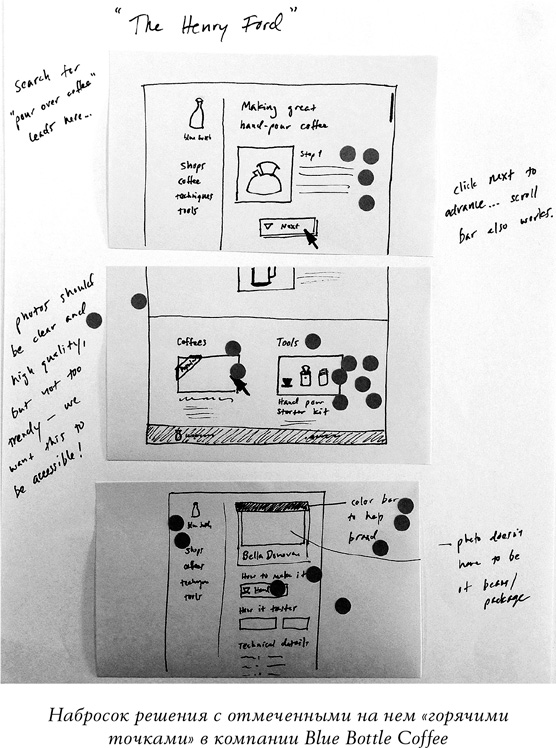 "The Henry Ford"
search for
"pour over coffee"
leads here...
blue bottle
shops
coffee
techniques
tools
Making great
hand-pour coffee
Step 1
Next
click next to
advance... scroll
bar also works.
photos should
be clear and
high quality,
but not too
trendy — we
want this to
be accessible!
Coffees
Tools
Hand pour
starter kit
shops
coffees
tools
Bella Donovan
How to make it
How it tastes
Technical details
color bar
to help
brand
photo doesn't
have to be
of bean/
package
Набросок решения с отмеченными на нем «горячими
точками» в компании Blue Bottle Coffee